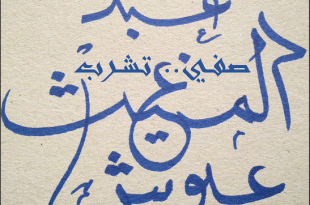 عبد
صفي.. تشرب
المغيث
علوش